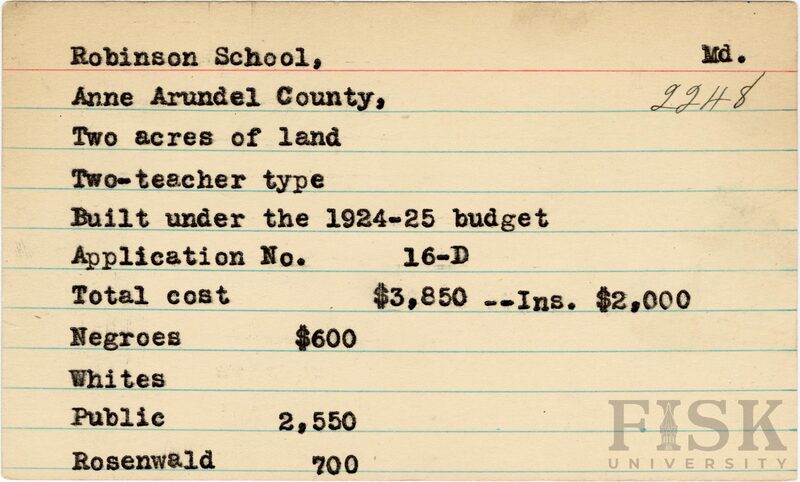 Robinson School, Md.
Anne Arundel County, 2248
Two acres of land
Two-teacher type
Built under the 1924-25 budget
Application No. 16-D
Total cost $3,850 --Ins. $2,000
Negroes $600
Whites
Public 2,550
Rosenwald 700
FISK
UNIVERSITY